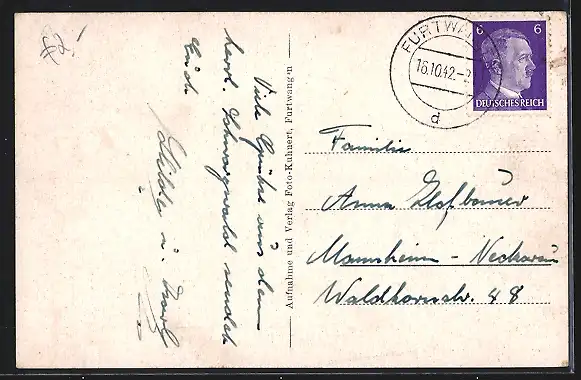 £2,-
Viele Grüße aus dem
herrl. Schwarzwald sendet
Euch
u. Karl
Aufnahme und Verlag Foto-Kuhnert, Furtwangen
FURTWA
16.10.42
d
6 6
DEUTSCHES REICH
Familie
Anna Hofbauer
Mannheim - Neckarau
Waldhornstr. 48